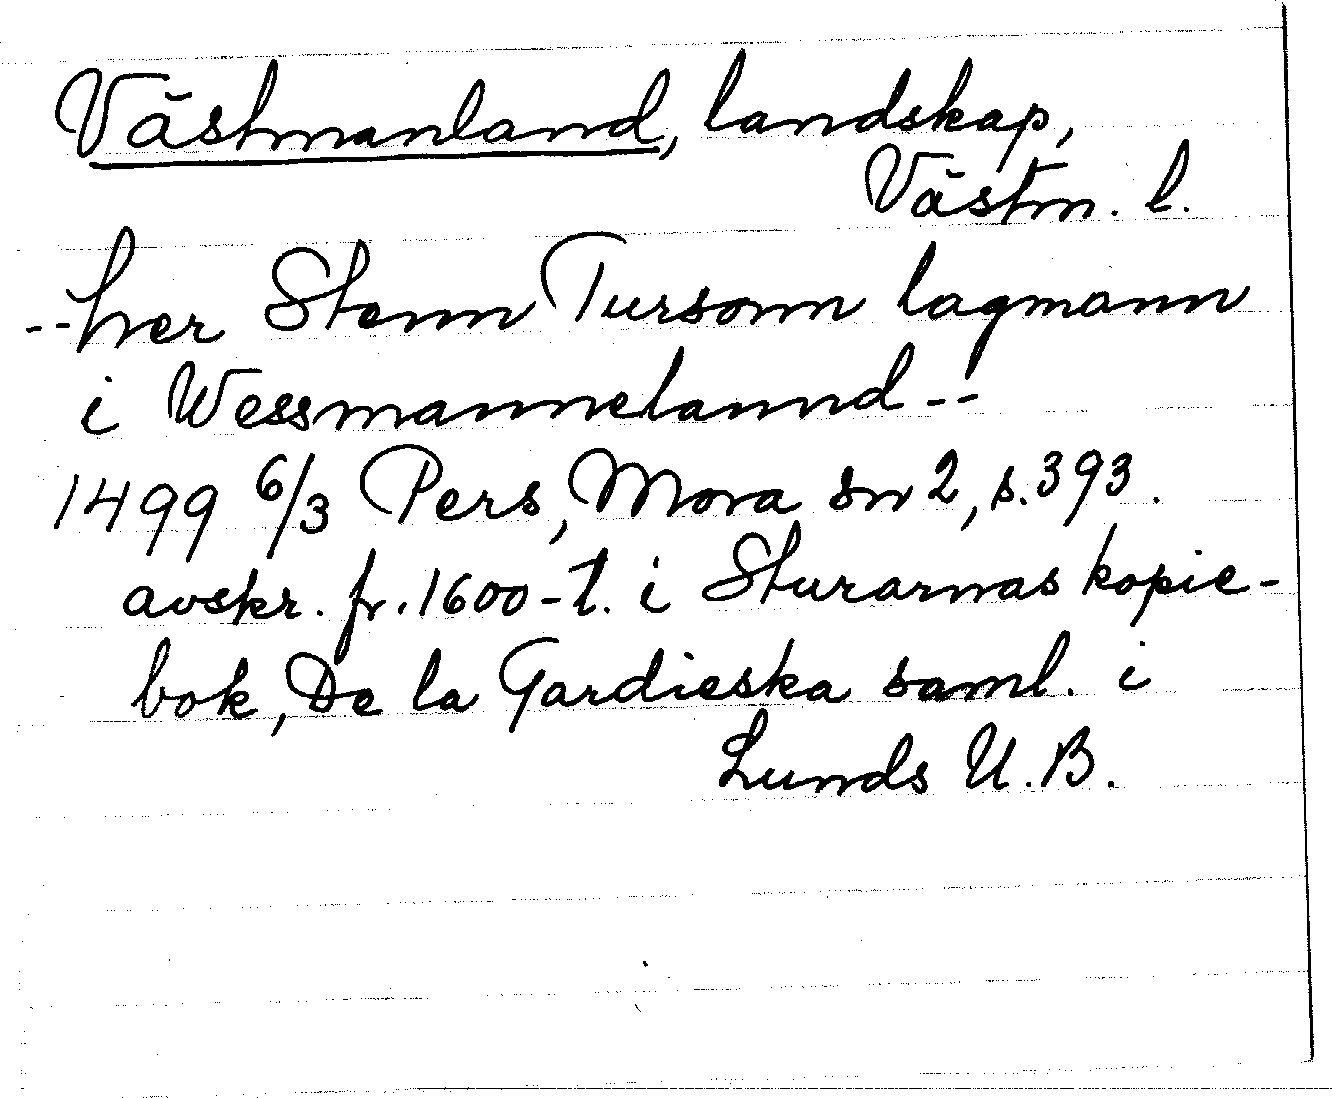 Västmanland, landskap,
Västm. l.
--her Stenn Tursonn lagmann
i Wessmannelannd--
1499 6/3 Pers, Mora sn 2, s. 393.
avskr. fr. 1600-t. i Sturarnas kopie-
bok, De la Gardieska saml. i
Lunds U.B.